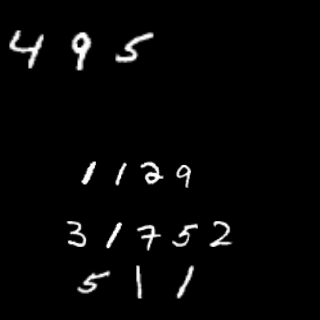 495
1129
31752
511